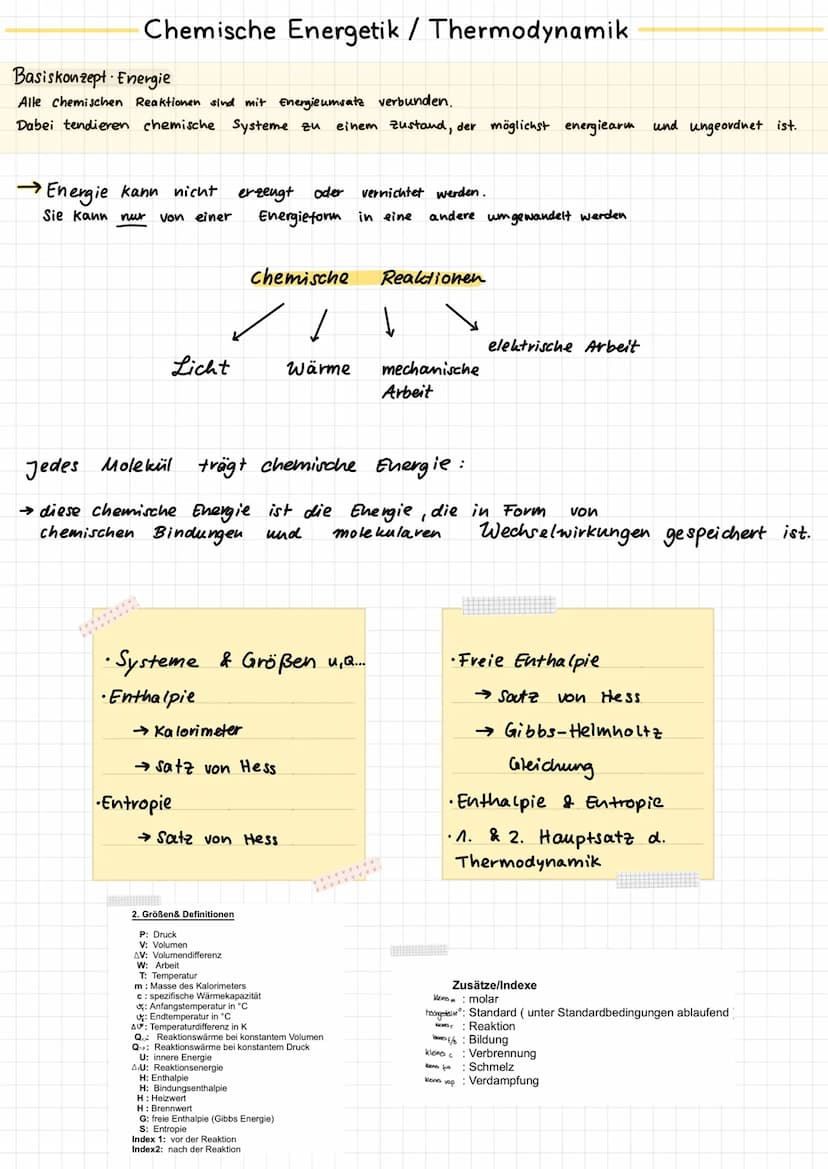 Chemische Energetik / Thermodynamik
Basiskonzept · Energie
Alle chemischen Reaktionen sind mit Energieumsatz verbunden.
Dabei tendieren chemische Systeme zu einem Zustand, der möglichst energiearm und ungeordnet ist.
→ Energie kann nicht erzeugt oder vernichtet werden.
Sie kann nur von einer Energieform in eine andere umgewandelt werden
Chemische Reaktionen
elektrische Arbeit
Licht Wärme mechanische
Arbeit
Jedes Molekül trägt chemische Energie :
→ diese chemische Energie ist die Energie, die in Form von
chemischen Bindungen und molekularen Wechselwirkungen gespeichert ist.
· Systeme & Größen u,Q...
· Enthalpie
→ Kalorimeter
→ Satz von Hess
· Entropie
→ Satz von Hess
· Freie Enthalpie
→ Satz von Hess
→ Gibbs-Helmholtz
Gleichung
· Enthalpie & Entropie
· 1. & 2. Hauptsatz d.
Thermodynamik
2. Größen& Definitionen
P: Druck
V: Volumen
ΔV: Volumendifferenz
W: Arbeit
T: Temperatur
m : Masse des Kalorimeters
c : spezifische Wärmekapazität
: Anfangstemperatur in °C
: Endtemperatur in °C
: Temperaturdifferenz in K
: Reaktionswärme bei konstantem Volumen
: Reaktionswärme bei konstantem Druck
U: innere Energie
: Reaktionsenergie
H: Enthalpie
H: Bindungsenthalpie
H : Heizwert
H : Brennwert
G: freie Enthalpie (Gibbs Energie)
S: Entropie
Index 1: vor der Reaktion
Index2: nach der Reaktion
Zusätze/Indexe
kleines m : molar
: Standard ( unter Standardbedingungen ablaufend
kleines r : Reaktion
: Bildung
kleines c : Verbrennung
: Schmelz
kleines vap : Verdampfung